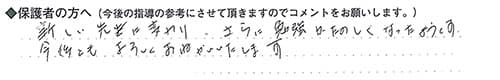 ◆保護者の方へ（今後の指導の参考にさせて頂きますのでコメントをお願いします。）
新しい先生に変わり、さらに勉強がたのしくなったようです
今後とも よろしくお願いいたします